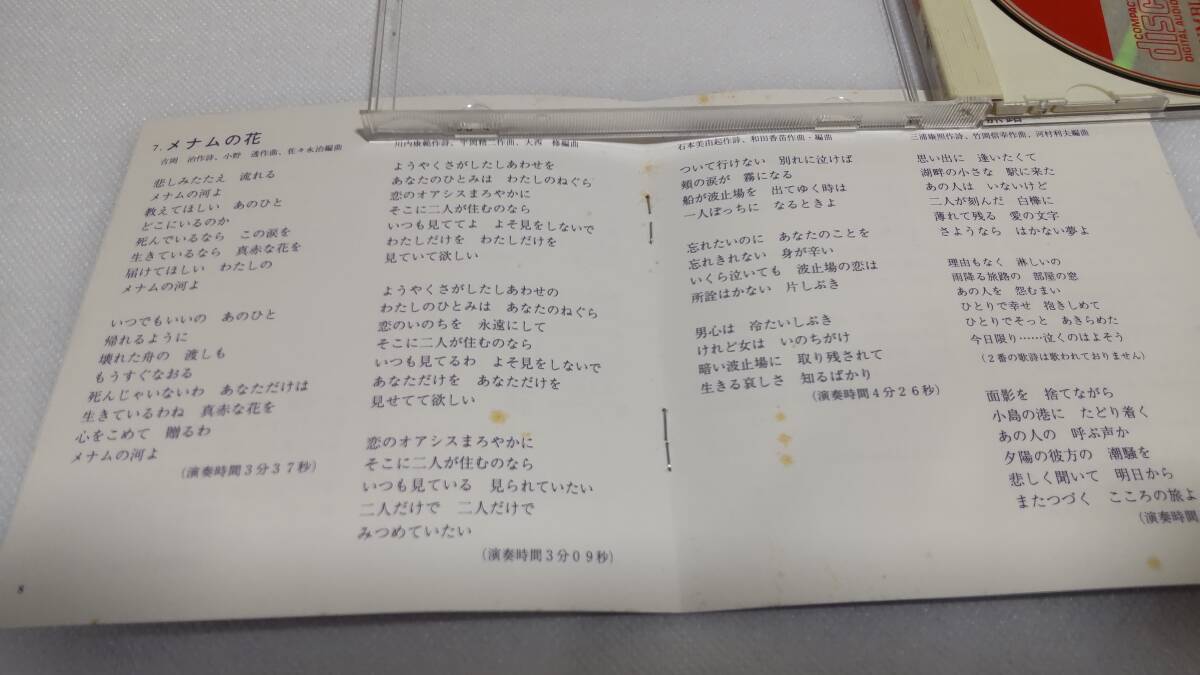 7. メナムの花
吉岡 治作詩、小野 透作曲、佐々永治編曲
悲しみたたえ 流れる
メナムの河よ
教えてほしい あのひと
どこにいるのか
死んでいるなら この涙を
生きているなら 真赤な花を
届けてほしい わたしの
メナムの河よ
いつでもいいの あのひと
帰れるように
壊れた舟の 渡しも
もうすぐなおる
死んじゃいないわ あなただけは
生きているわね 真赤な花を
心をこめて 贈るわ
メナムの河よ
(演奏時間3分37秒)
8
川内康範作詩、平岡精二作曲、大西 修編曲
ようやくさがしたしあわせを
あなたのひとみは わたしのねぐら
恋のオアシスまろやかに
そこに二人が住むのなら
いつも見ててよ よそ見をしないで
わたしだけを わたしだけを
見ていて欲しい
ようやくさがしたしあわせの
わたしのひとみは あなたのねぐら
恋のいのちを 永遠にして
そこに二人が住むのなら
いつも見てるわ よそ見をしないで
あなただけを あなただけを
見せてて欲しい
恋のオアシスまろやかに
そこに二人が住むのなら
いつも見ている 見られていたい
二人だけで 二人だけで
みつめていたい
(演奏時間3分09秒)
石本美由起作詩、和田香苗作曲・編曲
ついて行けない 別れに泣けば
頬の涙が 霧になる
船が波止場を 出てゆく時は
一人ぼっちに なるときよ
忘れたいのに あなたのことを
忘れきれない 身が辛い
いくら泣いても 波止場の恋は
所詮はかない 片しぶき
男心は 冷たいしぶき
けれど女は いのちがけ
暗い波止場に 取り残されて
生きる哀しさ 知るばかり
(演奏時間4分26秒)
旅路
三浦康照作詩、竹岡信幸作曲、河村利夫編曲
思い出に 逢いたくて
湖畔の小さな 駅に来た
あの人は いないけど
二人が刻んだ 白樺に
薄れて残る 愛の文字
さようなら はかない夢よ
理由もなく 淋しいの
雨降る旅路の 部屋の窓
あの人を 怨むまい
ひとりで幸せ 抱きしめて
ひとりでそっと あきらめた
今日限り……泣くのはよそう
(2番の歌詩は歌われておりません)
面影を 捨てながら
小島の港に たどり着く
あの人の 呼ぶ声か
夕陽の彼方の 潮騒を
悲しく聞いて 明日から
またつづく こころの旅よ
(演奏時間
COMPACT
disc
DIGITAL AUDIO